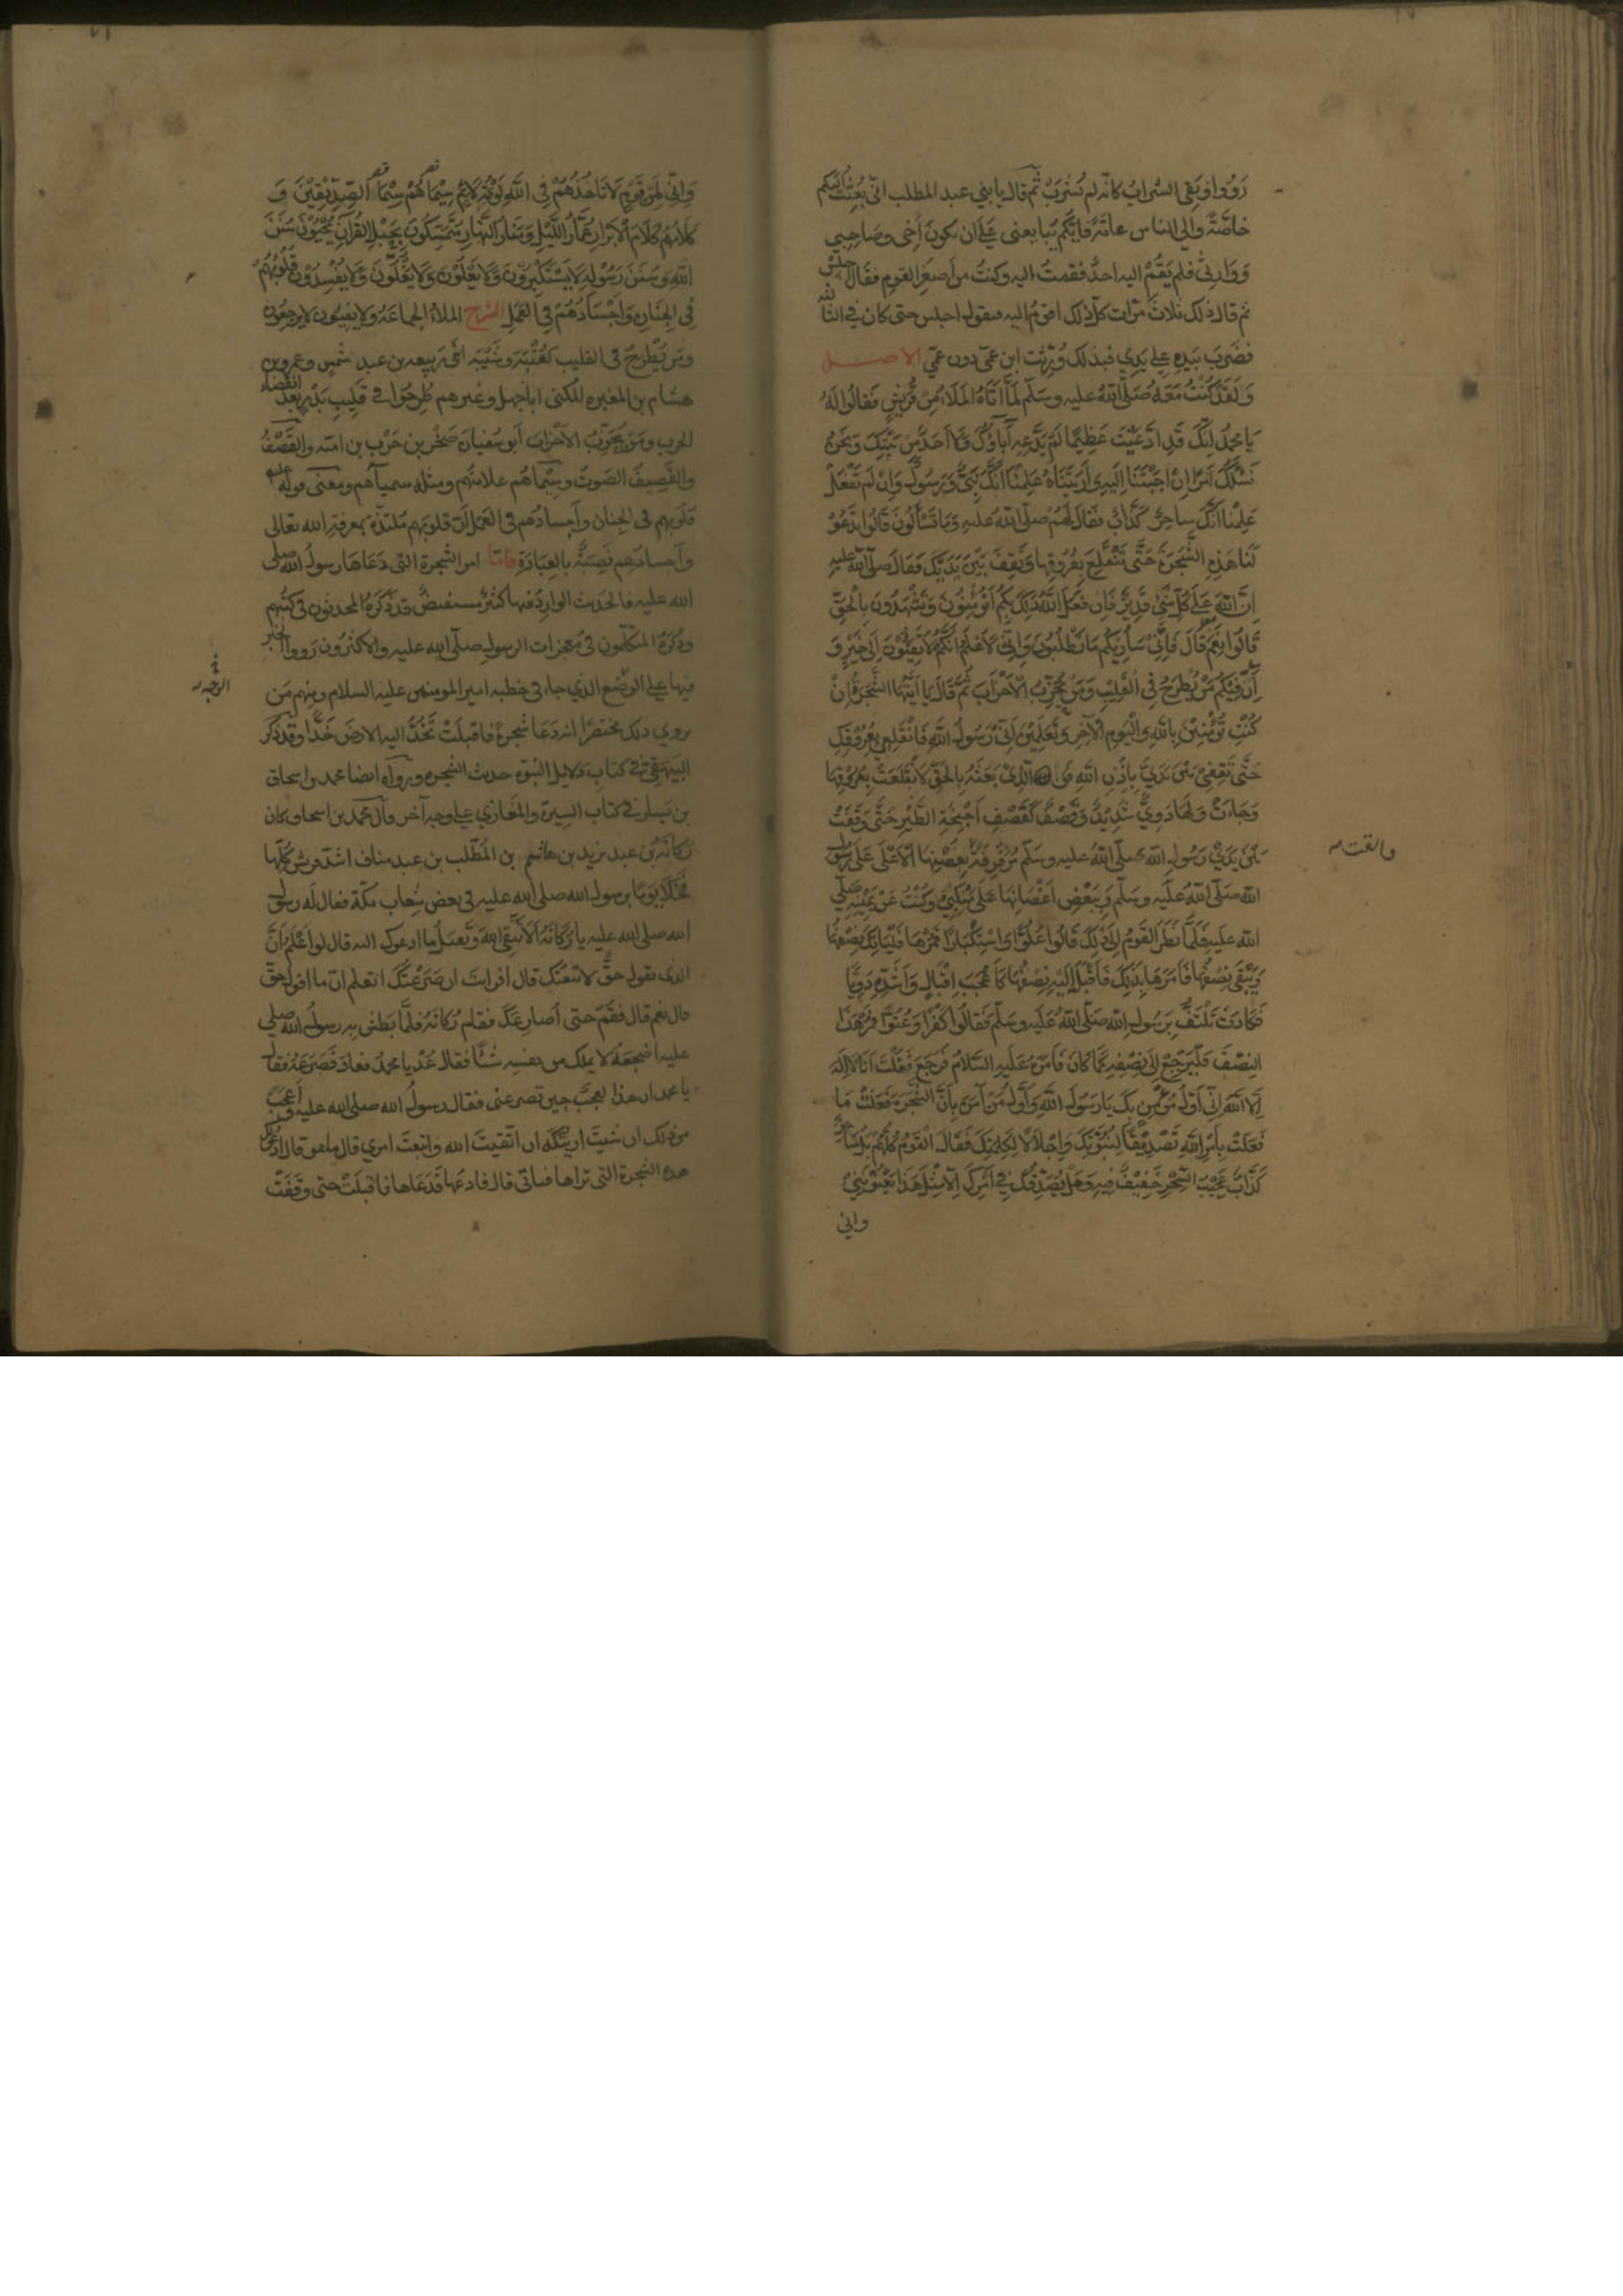 رَوُوا وَبَقِيَ الشرابُ كانّه لم يُشرَبْ ثُم قال يا بني عبد المطلب انّي بُعِثتُ اليكم
خاصّةً والى الناس عامّةً فايّكم يبايعنى عَلى ان يكون أَخى وصَاحِبِي
وَوَارثى فلم يَقُمْ اليه احدٌ فقمتُ اليه وكنتُ من اَصغرِ القوم فقال اجلس
ثم قال ذلك ثلاثَ مرّات كلّ ذلك اقومُ اليه فيقول اجلس حتى كان في الثالثة
فضَربَ بيَدِه على يَدِي فبذلك وُرِّثت ابن عمّى دون عمّي الاصل
وَلَقَدْ كُنْتُ مَعَهُ صَلّى اللهُ عليه وسَلّم لَمّا اَتَاهُ المَلَاءُ مِنْ قُرَيْشٍ فَقَالُوا لَهُ
يَا مُحَمّدُ اِنَّكَ قَدِ ادَّعَيْتَ عَظِيمًا لَمْ يَدَّعِهِ آبَاؤُكَ وَلَا اَحَدٌ مِنْ بَيْتِكَ وَنَحْنُ
نَسْئَلُكَ اَمْرًا اِنْ اَجَبْتَنَا اِلَيْهِ وَاَرَيْتَنَاهُ عَلِمْنَا اَنَّكَ نَبِيٌّ وَرَسُولٌ وَاِنْ لَمْ تَفْعَلْ
عَلِمْنَا اَنَّكَ سَاحِرٌ كَذَّابٌ فَقَالَ لَهُمْ صلّى اللهُ عليه وَمَا تَسْأَلُونَ قَالُوا تَدْعُوْ
لَنَا هَذِهِ الشَّجَرَةَ حَتَّى تَنْقَلِعَ بِعُرُوقِهَا وَتَقِفَ بَيْنَ يَدَيْكَ فَقَالَ صَلّى اللهُ عليه
اِنَّ اللهَ عَلَى كُلِّ شَيْءٍ قَدِيرٌ فَاِنْ فَعَلَ اللهُ ذَلِكَ بِكُمْ اَتُؤْمِنُونَ وَتَشْهَدُونَ بِالْحَقِّ
قَالُوا نَعَمْ قَالَ فَاِنِّي سَأُرِيْكُمْ مَا تَطْلُبُونَ وَاِنِّي لَاَعْلَمُ اَنَّكُمْ لَا تَفِيْئُوْنَ اِلَى خَيْرٍ وَ
اَنَّ فِيْكُمْ مَنْ يُطْرَحُ فِي الْقَلِيْبِ وَمَنْ يُحَزِّبُ الْاَحْزَابَ ثُمَّ قَالَ يَا اَيَّتُهَا الشَّجَرَةُ اِنْ
كُنْتِ تُؤْمِنِيْنَ بِاللهِ وَالْيَوْمِ الْآخِرِ وَتَعْلَمِيْنَ اَنِّي رَسُولُ اللهِ فَانْقَلِعِي بِعُرُوْقِكِ
حَتَّى تَقِفِيْ بَيْنَ يَدَيَّ بِاِذْنِ اللهِ وَالَّذِيْ بَعَثَهُ بِالْحَقِّ لَانْقَلَعَتْ بِعُرُوْقِهَا
وَجَاءَتْ وَلَهَا دَوِيٌّ شَدِيْدٌ وَقَصْفٌ كَقَصْفِ اَجْنِحَةِ الطَّيْرِ حَتَّى وَقَفَتْ
بَيْنَ يَدَيْ رَسُولِ اللهِ صلّى اللهُ عليه وسلّم مُرَفْرِفَةً بِغُصْنِهَا الْاَعْلَى عَلَى رَسُول
الله صَلّى اللهُ عَلَيه وسَلّم وَبِبَعْضِ اَغْصَانِهَا عَلَى مَنْكِبِيْ وَكُنْتُ عَنْ يَمِيْنِهِ صَلّى
الله عَلَيه فَلَمَّا نَظَرَ القَوْمُ اِلَى ذَلِكَ قَالُوا عُلُوًّا وَاسْتِكْبَارًا فَمُرْهَا فَلْيَاْتِكَ نِصْفُهَا
وَيَبْقَى نِصْفُهَا فَاَمَرَهَا بِذَلِكَ فَاَقْبَلَ اِلَيْهِ نِصْفُهَا كَاَعْجَبِ اِقْبَالٍ وَاَشَدِّهِ دَوِيًّا
فَكَادَتْ تَلْتَفُّ بِرَسُولِ اللهِ صَلّى اللهُ عَلَيه وسَلّم فَقَالُوا كُفْرًا وَعُتُوًّا فَمُرْ هَذَا
النِصْفَ فَلْيَرْجِعْ اِلَى نِصْفِهِ كَمَا كَانَ فَاَمَرَهُ عَلَيه السَّلامُ فَرَجَعَ فَقُلْتُ اَنَا لَا اِلَهَ
اِلَّا اللهُ اِنِّي اَوَّلُ مُؤْمِنٍ بِكَ يَا رَسُولَ اللهِ وَاَوَّلُ مَنْ آمَنَ بِاَنَّ الشَّجَرَةَ فَعَلَتْ مَا
فَعَلَتْ بِاَمْرِ اللهِ تَصْدِيْقًا لِنُبُوَّتِكَ وَاِجْلَالًا لِكَلِمَتِكَ فَقَالَ القَوْمُ كُلُّهُمْ بَلْ سَاحِرٌ
كَذَّابٌ عَجِيْبُ السِّحْرِ خَفِيْفٌ فِيهِ وَهَلْ يُصَدِّقُكَ فِي اَمْرِكَ اِلَّا مِثْلُ هَذَا يَعْنُوْنَنِيْ
واني
والقت
وَاِنِّي لَمِنْ قَوْمٍ لَا تَاخُذُهُمْ فِي اللهِ لَوْمَةُ لَائِمٍ سِيْمَاهُمْ سِيْمَا الصِّدِّيْقِيْنَ وَ
كَلَامُهُمْ كَلَامُ الْاَبْرَارِ عُمَّارُ اللَّيْلِ وَمَنَارُ النَّهَارِ مُتَمَسِّكُوْنَ بِحَبْلِ القُرآنِ يُحْيُوْنَ سُنَنَ
اللهِ وَسُنَنَ رَسُوْلِهِ لَا يَسْتَكْبِرُوْنَ وَلَا يَعْلُوْنَ وَلَا يَغُلُّوْنَ وَلَا يُفْسِدُوْنَ قُلُوْبُهُمْ
فِي الجِنَانِ وَاَجْسَادُهُمْ فِي العَمَلِ الشرح الملاءُ الجماعَةُ ولا يفيئون لا يرجعون
ومن يُطْرَحُ فى القليب كعُتْبَة وشَيْبَة ابنى ربيعه بن عبد شمس وعمرو بن
هشام بن المغيره المكنى اباجهل وغيرهم طُرِحُوا في قَلِيبِ بَدْرٍ بعد انقضاء
الحرب ومَن يُحَزِّبُ الاَحْزابَ اَبو سُفيان صَخْر بن حَرْب بن اميّه والقَصْفُ
والقَصِيفُ الصَوت وسِيْمَاهُم علامتُهم ومثله سيمياهُم ومعنى قوله عليه
قلوبهم فى الجنان وأجسادهم فى العَمَل انّ قلوبَهم مُلتذّة بمعرفةِ الله تعالى
وأجسادهم نَصِبَةٌ بالعِبَادَةِ فامّا امر الشجرة التى دَعَاهَا رسولُ الله صلى
الله عليه فالحديث الوارِدُ فيها كثيرٌ مستفيضٌ قد ذَكَرَهُ المحدثون فى كتبهم
وذكرَهُ المتكلّمون فى مُعجزات الرسول صلّى الله عليه والاكثرُون رَووا الخبر
فيها على الوَضع الذي جاء فى خطبه امير المومنين عليه السلام ومنهم مَن
يروي ذلك مختصرًا انه دَعَا شَجرةً فاقبَلَتْ تَخُدُّ اليه الارضَ خَدًّا وقد ذكَر
البَيهَقِيُّ في كتابِ دَلايل النُبُوّه حديث الشجره ورواه ايضا محمد بن اسحاق
بن يَسار في كتاب السِيرَة والمغَازي على وجه آخر قال محمد بن اسحاق كان
رُكانةُ بن عبد يزيد بن هاشم بن المُطّلب بن عبد مناف اشدّ قريش كُلّها
فَخَلَا يومًا برسول الله صلى الله عليه فى بعض شِعابِ مكّة فقال له رسول
الله صلى الله عليه يا رُكَانَةُ اَلَا تَتَّقِي اللهَ وَتَقبَلُ ما ادعوك اليه قال لو اَعْلَمُ اَنَّ
الذى تقول حقٌّ لاتبعتك قال افرايتَ ان صَرَعْتُكَ اتعلم انّ ما اقول حقّ
قال نعم قال فقُمْ حتى أُصارِعَكَ فقام رُكانَةُ فلمّا بَطَش به رسولُ الله صلى
عليه اضجعَهُ لا يملك من نفسِه شيئًا فقال عُدْ يا محمدُ فعادَ فَصَرَعَهُ فقال
يا محمد ان هذا لعجَبٌ حين تصرعنى فقال رسولُ الله صلى الله عليه واَعْجَبُ
من ذلك ان شيتَ اريتُكَه ان اتّقيتَ الله واتبعتَ امري قال ما هو قال ادعو لك
هذه الشجرة التى تراها فتاتى قال فادعُها فَدَعَاها فاقبَلَتْ حتى وقَفَتْ
الوجه